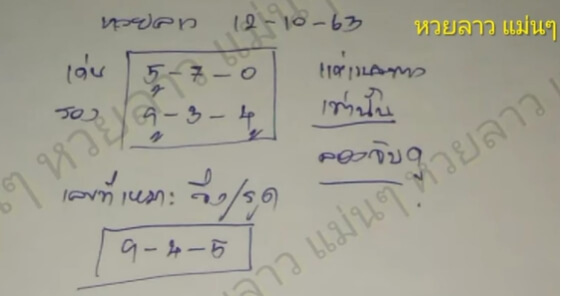 หวยลาว 12-10-63
หวยลาว แม่นๆ
เด่น 5-7-0
รอง 9-3-4
แค่แนวทาง
เท่านั้น
ลองจับดู
เลขที่เหมาะ วิ่ง/รูด
9-4-5
หวยลาว แม่นๆ หวยลาว แม่นๆ